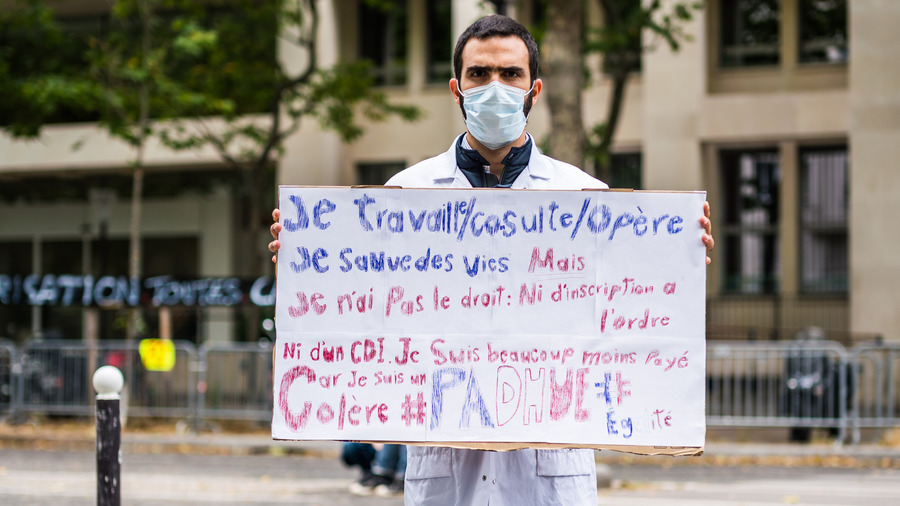 RISATION TOUTES CA
Je travaille/cosulte/Opère
Je sauvedes vies Mais
Je n'ai Pas le droit: Ni d'inscription a
l'ordre
Ni d'un CDI. Je Suis beaucoup moins Payé
Car Je suis un PADHUE #
Colère # Eg ité